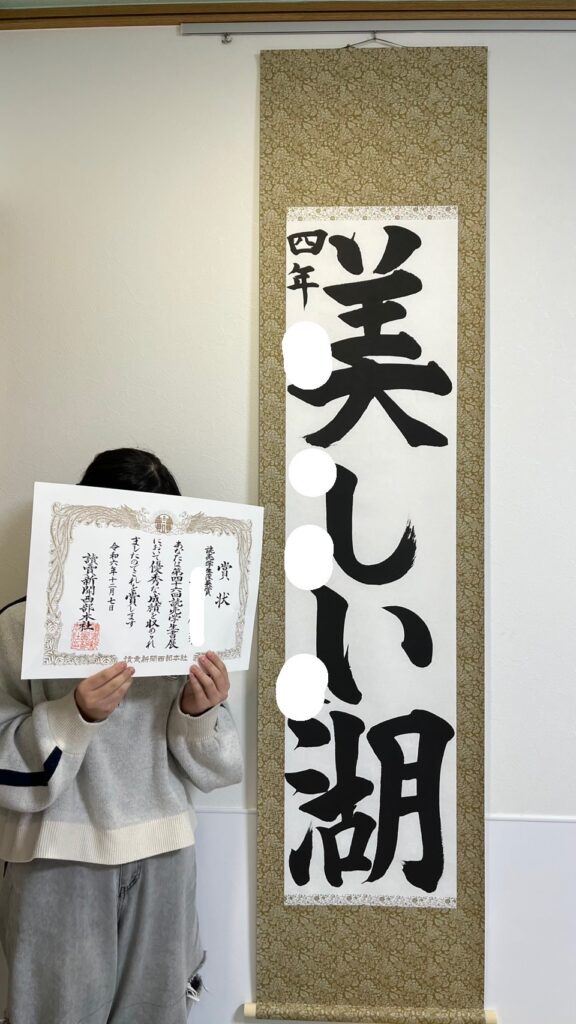 美しい湖
四年
賞状
読売学生書展賞
あなたは第四十六回読売学生書展
において優秀な成績を収められ
ましたのでこれを賞します
令和六年十二月七日
読売新聞西部本社
読売新聞西部本社